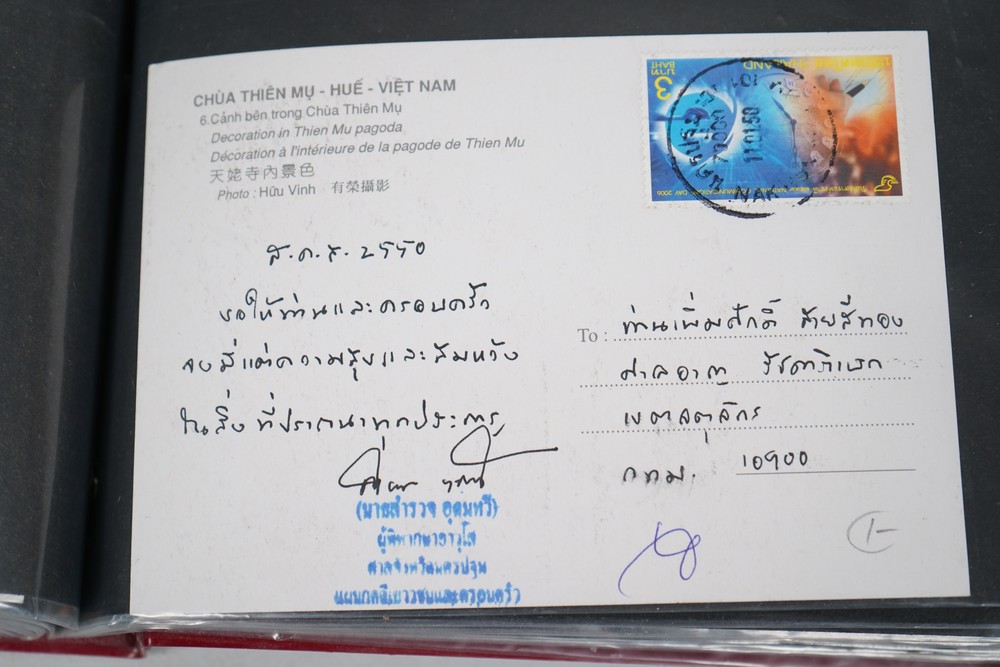 CHÙA THIÊN MỤ - HUẾ - VIỆT NAM
6.Cảnh bên trong Chùa Thiên Mụ
Decoration in Thien Mu pagoda
Décoration à l'intérieure de la pagode de Thien Mu
天姥寺內景色
Photo : Hữu Vinh 有榮攝影
3
บาท
BAHT
THAILAND
COMMUNICATIONS DAY 2006
นครปฐม
73000
11.01.50
NAK
ส.ค.ส. ๒๕๕๐
ขอให้ท่านและครอบครัว
จงมีแต่ความสุขและสมหวัง
ในสิ่งที่ปรารถนาทุกประการ
(นายสำรวจ อุดมทวี)
ผู้พิพากษาอาวุโส
ศาลจังหวัดนครปฐม
แผนกคดีเยาวชนและครอบครัว
To : ท่านเพิ่มศักดิ์ สายสีทอง
ศาลอาญา รัชดาภิเษก
เขตจตุจักร
กทม. 10900
1-